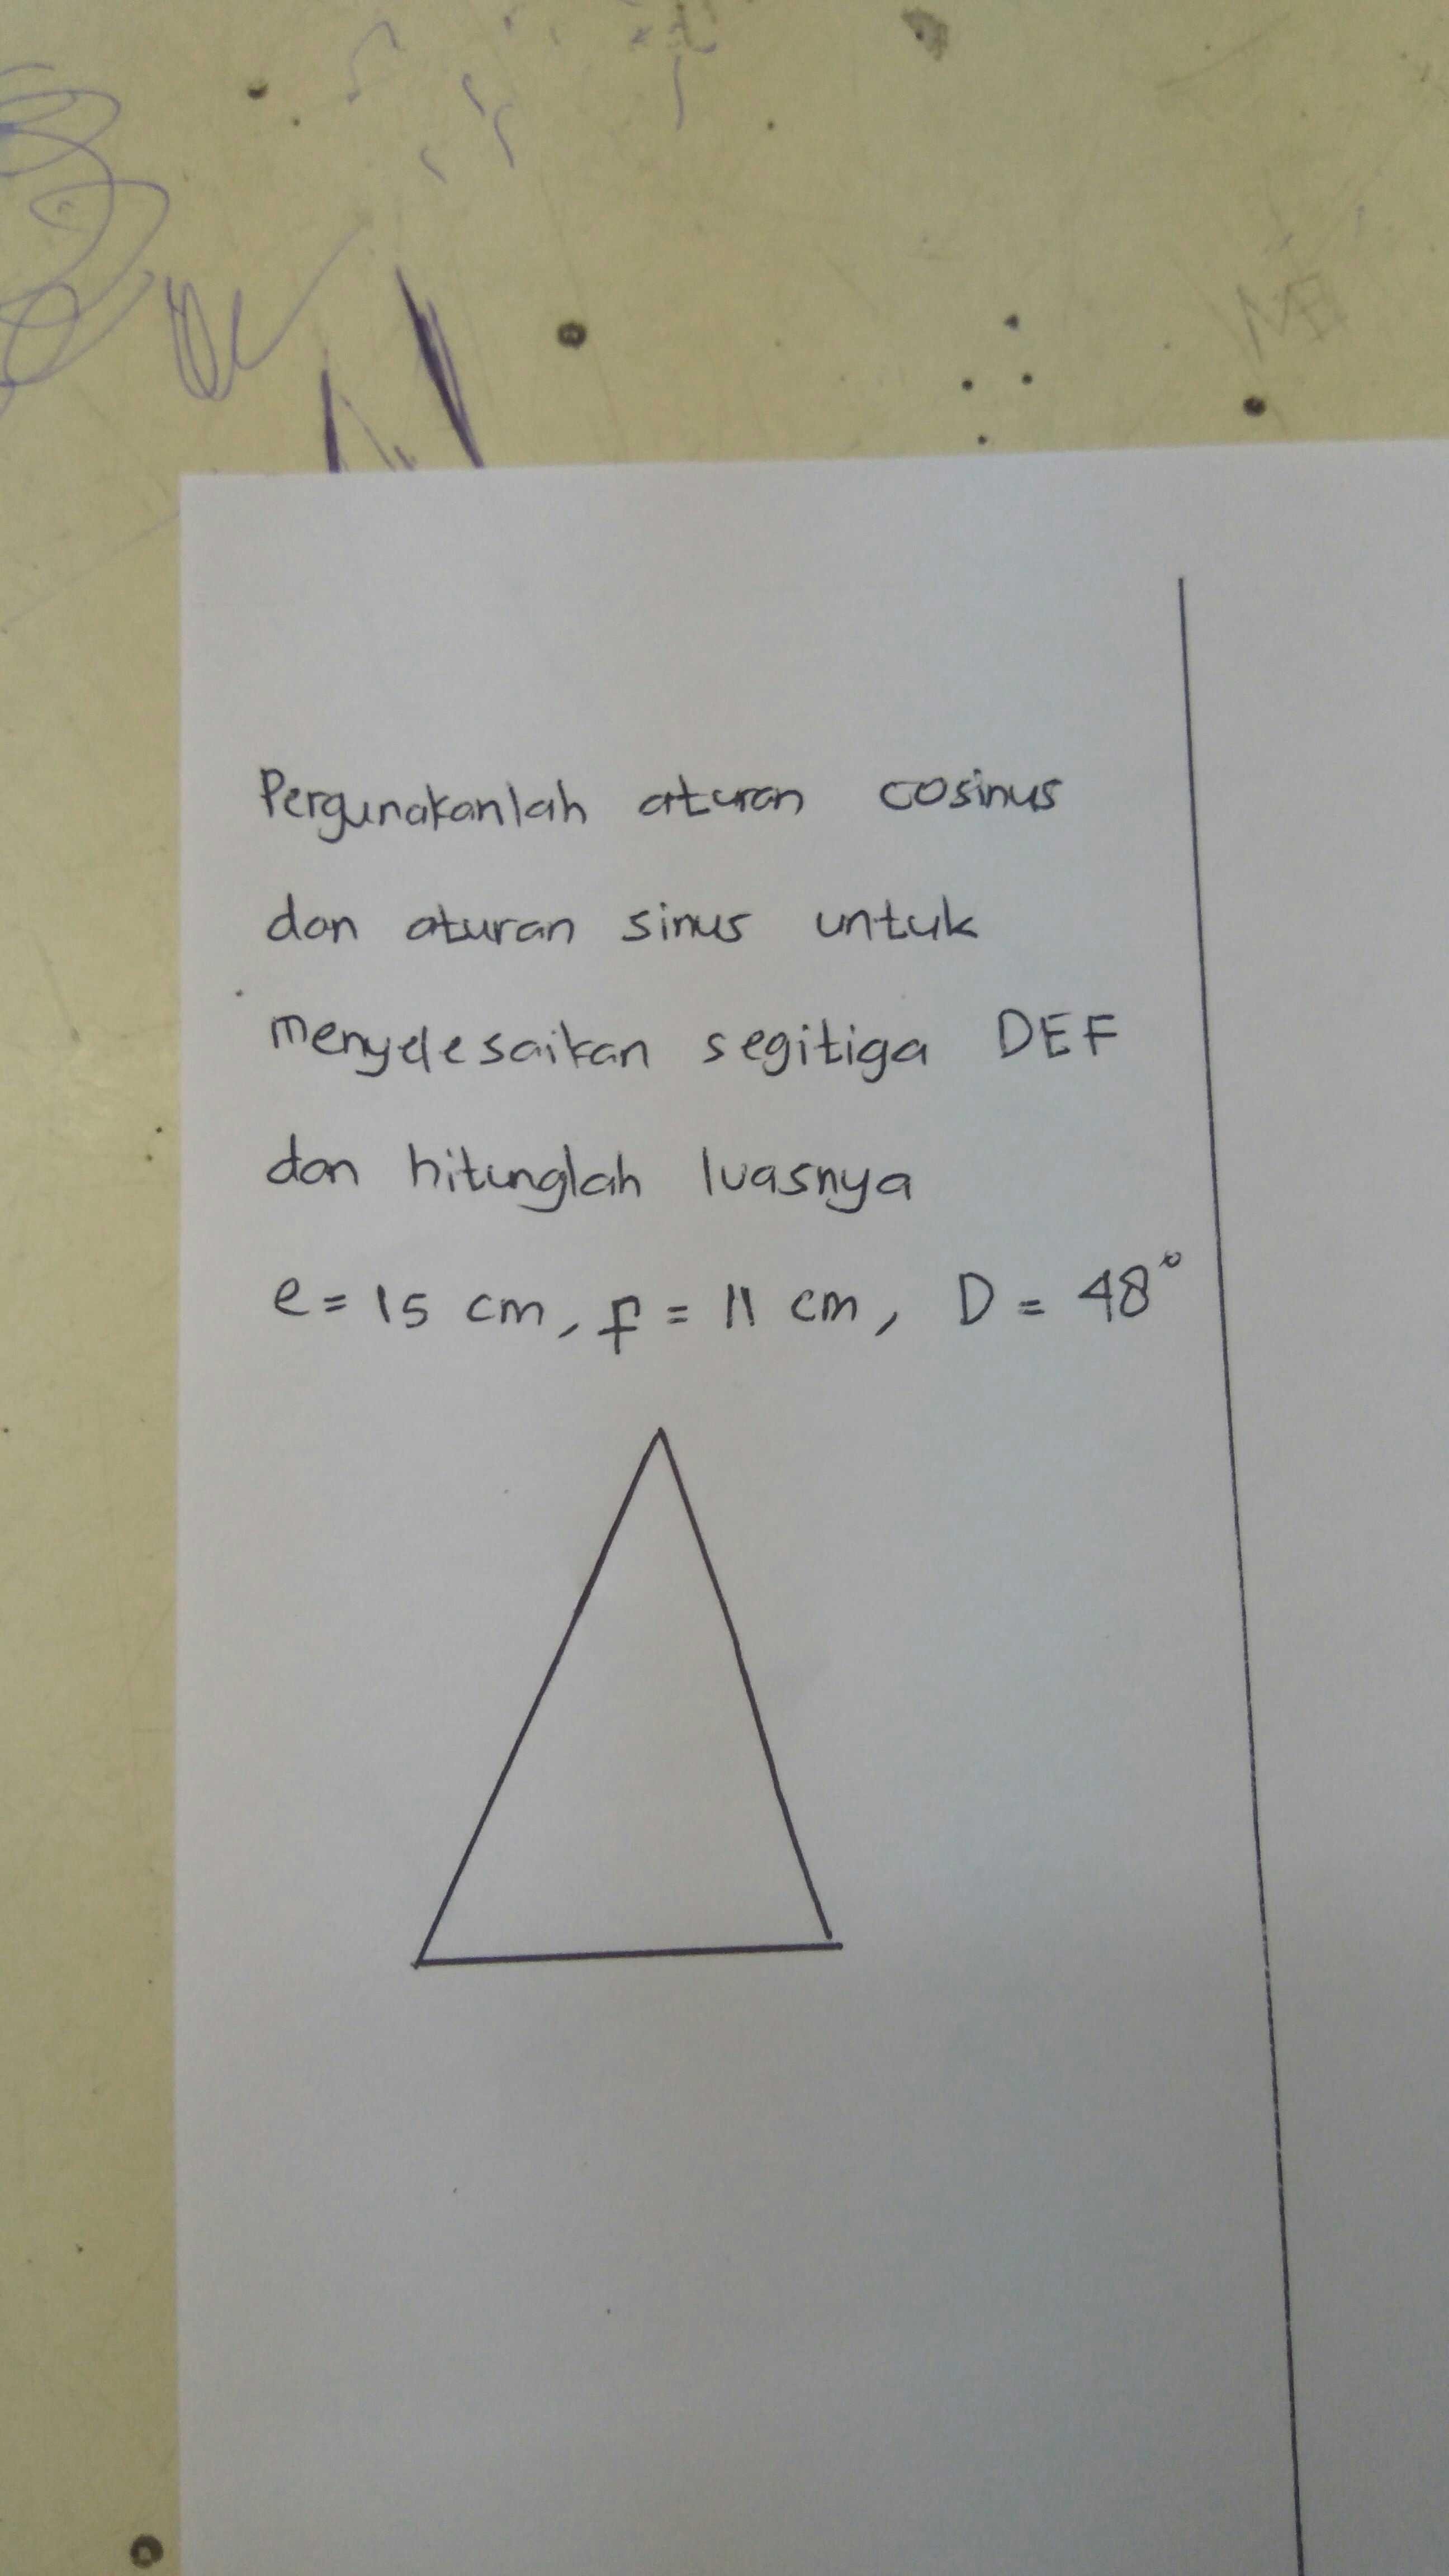 Pergunakanlah aturan cosinus
dan aturan sinus untuk
menyelesaikan segitiga DEF
dan hitunglah luasnya
e = 15 cm, f = 11 cm, D = 48°